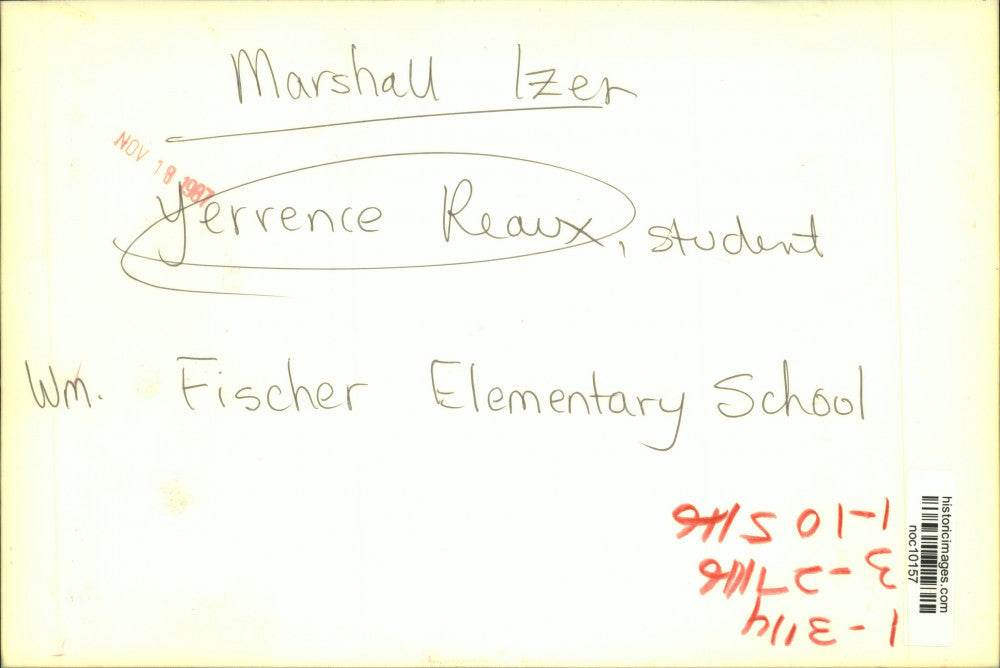 Marshall Izer
NOV 18 1987
Yerrence Reaux, student
Wm. Fischer Elementary School
historicimages.com
noc10157